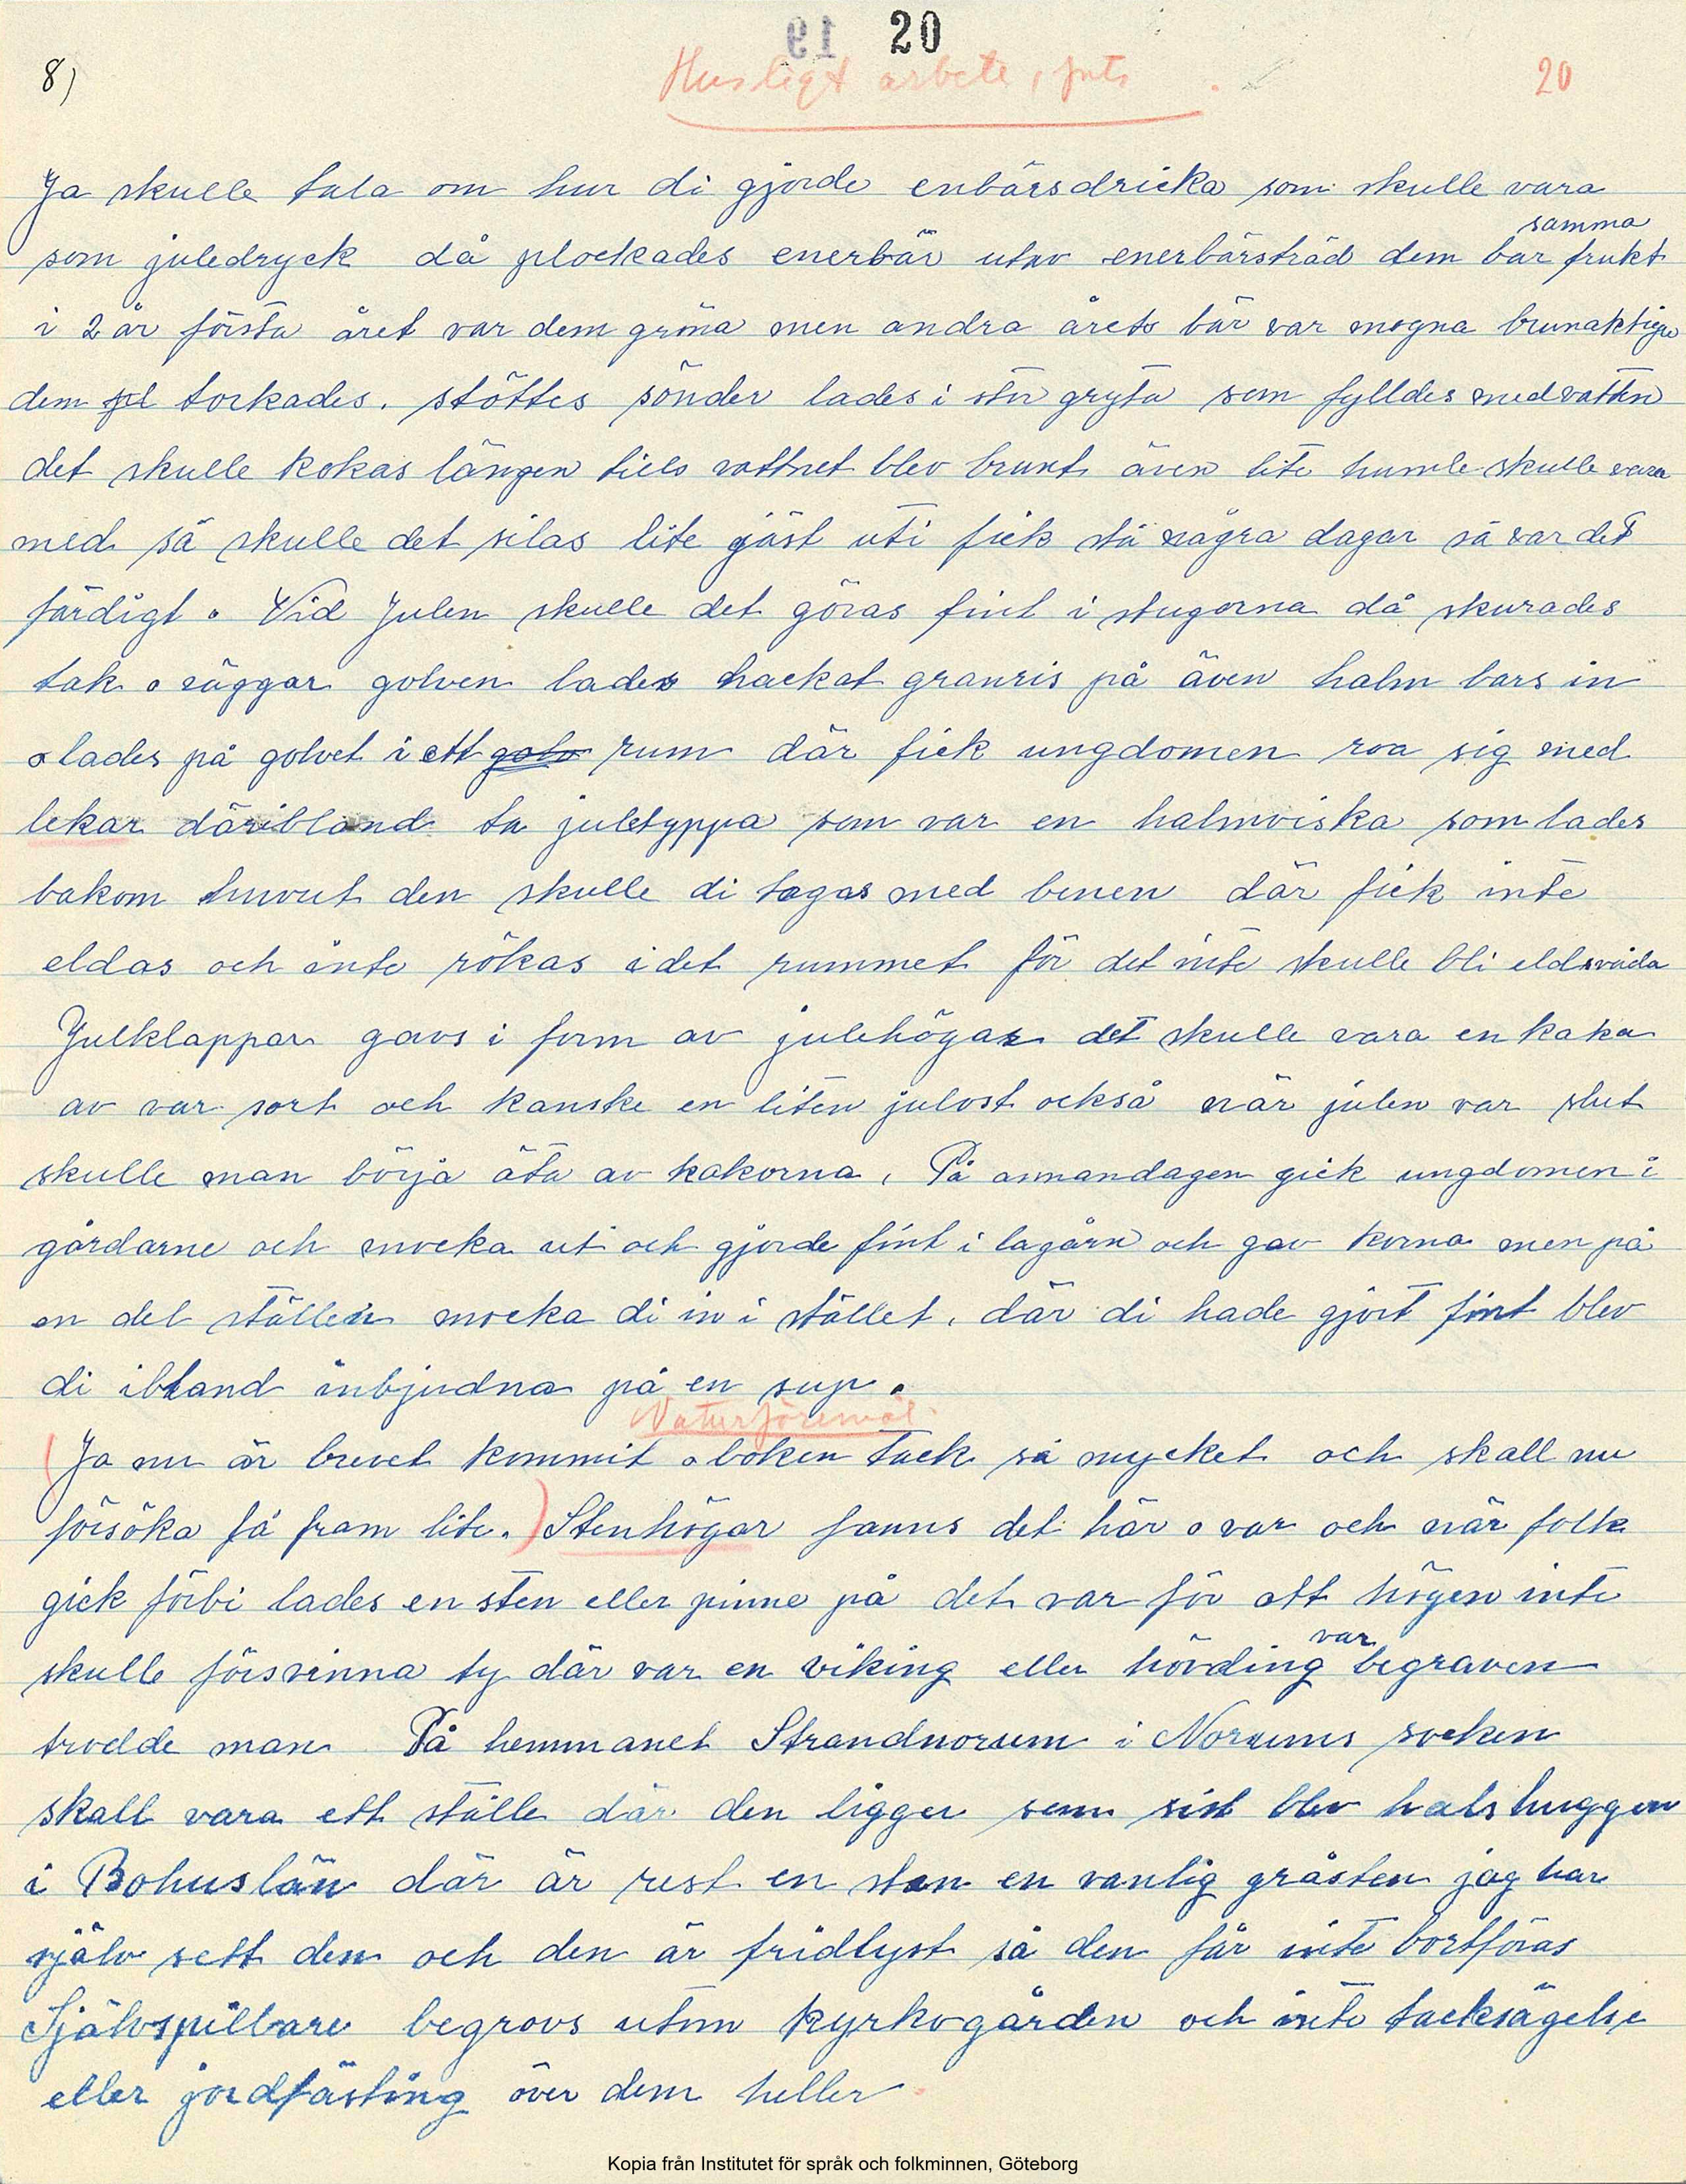 19 20
8)
Husligt arbete,
20
Ja skulle tala om hur di gjorde enbärsdricka som skulle vara
samma
som juledryck då plockades enerbär utav enerbärsträd dem bar frukt
i 2 år första året var dem gröna men andra årets bär var mogna brunaktiga
dem pl torkades. stöttes sönder lades i stor gryta som fylldes med vatten
det skulle kokas längen tiels vattnet blev brunt även lite humle skulle vara
med så skulle det silas lite gjäst uti fick stå några dagar så var det
färdigt. Vid Julen skulle det göras fint i stugorna då skurades
tak o väggar golven lades hackat granris på även halm bars in
o lades på golvet i ett golv rum där fick ungdomen roa sig med
lekar däribland ta juletyppa som var en halmviska som lades
bakom huvut den skulle di tagas med benen där fick inte
eldas och inte rökas i det rummet för det inte skulle bli eldsvåda
Julklappar gavs i form av julehögar det skulle vara en kaka
av var sort och kanske en liten julost också när julen var slut
skulle man börja äta av kakorna, På annandagen gick ungdomen i
gårdarne och mocka ut och gjorde fint i lagårn och gav korna men på
en del ställen mocka di in i stället, där di hade gjort fint blev
di ibland inbjudna på en sup.
Naturföremål.
(Ja nu är brevet kommit o boken tack så mycket och skall nu
försöka få fram lite.) Stenhögar fanns det här o var och när folk
gick förbi lades en sten eller pinne på det var för att högen inte
var
skulle försvinna ty där var en viking eller hövding begraven
trodde man På hemmanet Strandnorum i Norums socken
skall vara ett ställe där den ligger som sist blev halshuggen
i Bohuslän där är rest en sten en vanlig gråsten jag har
själv sett den och den är fridlyst så den får inte bortföras
Självspillare begrovs utom kyrkogården och inte tacksägelse
eller jordfästing över dem heller
Kopia från Institutet för språk och folkminnen, Göteborg